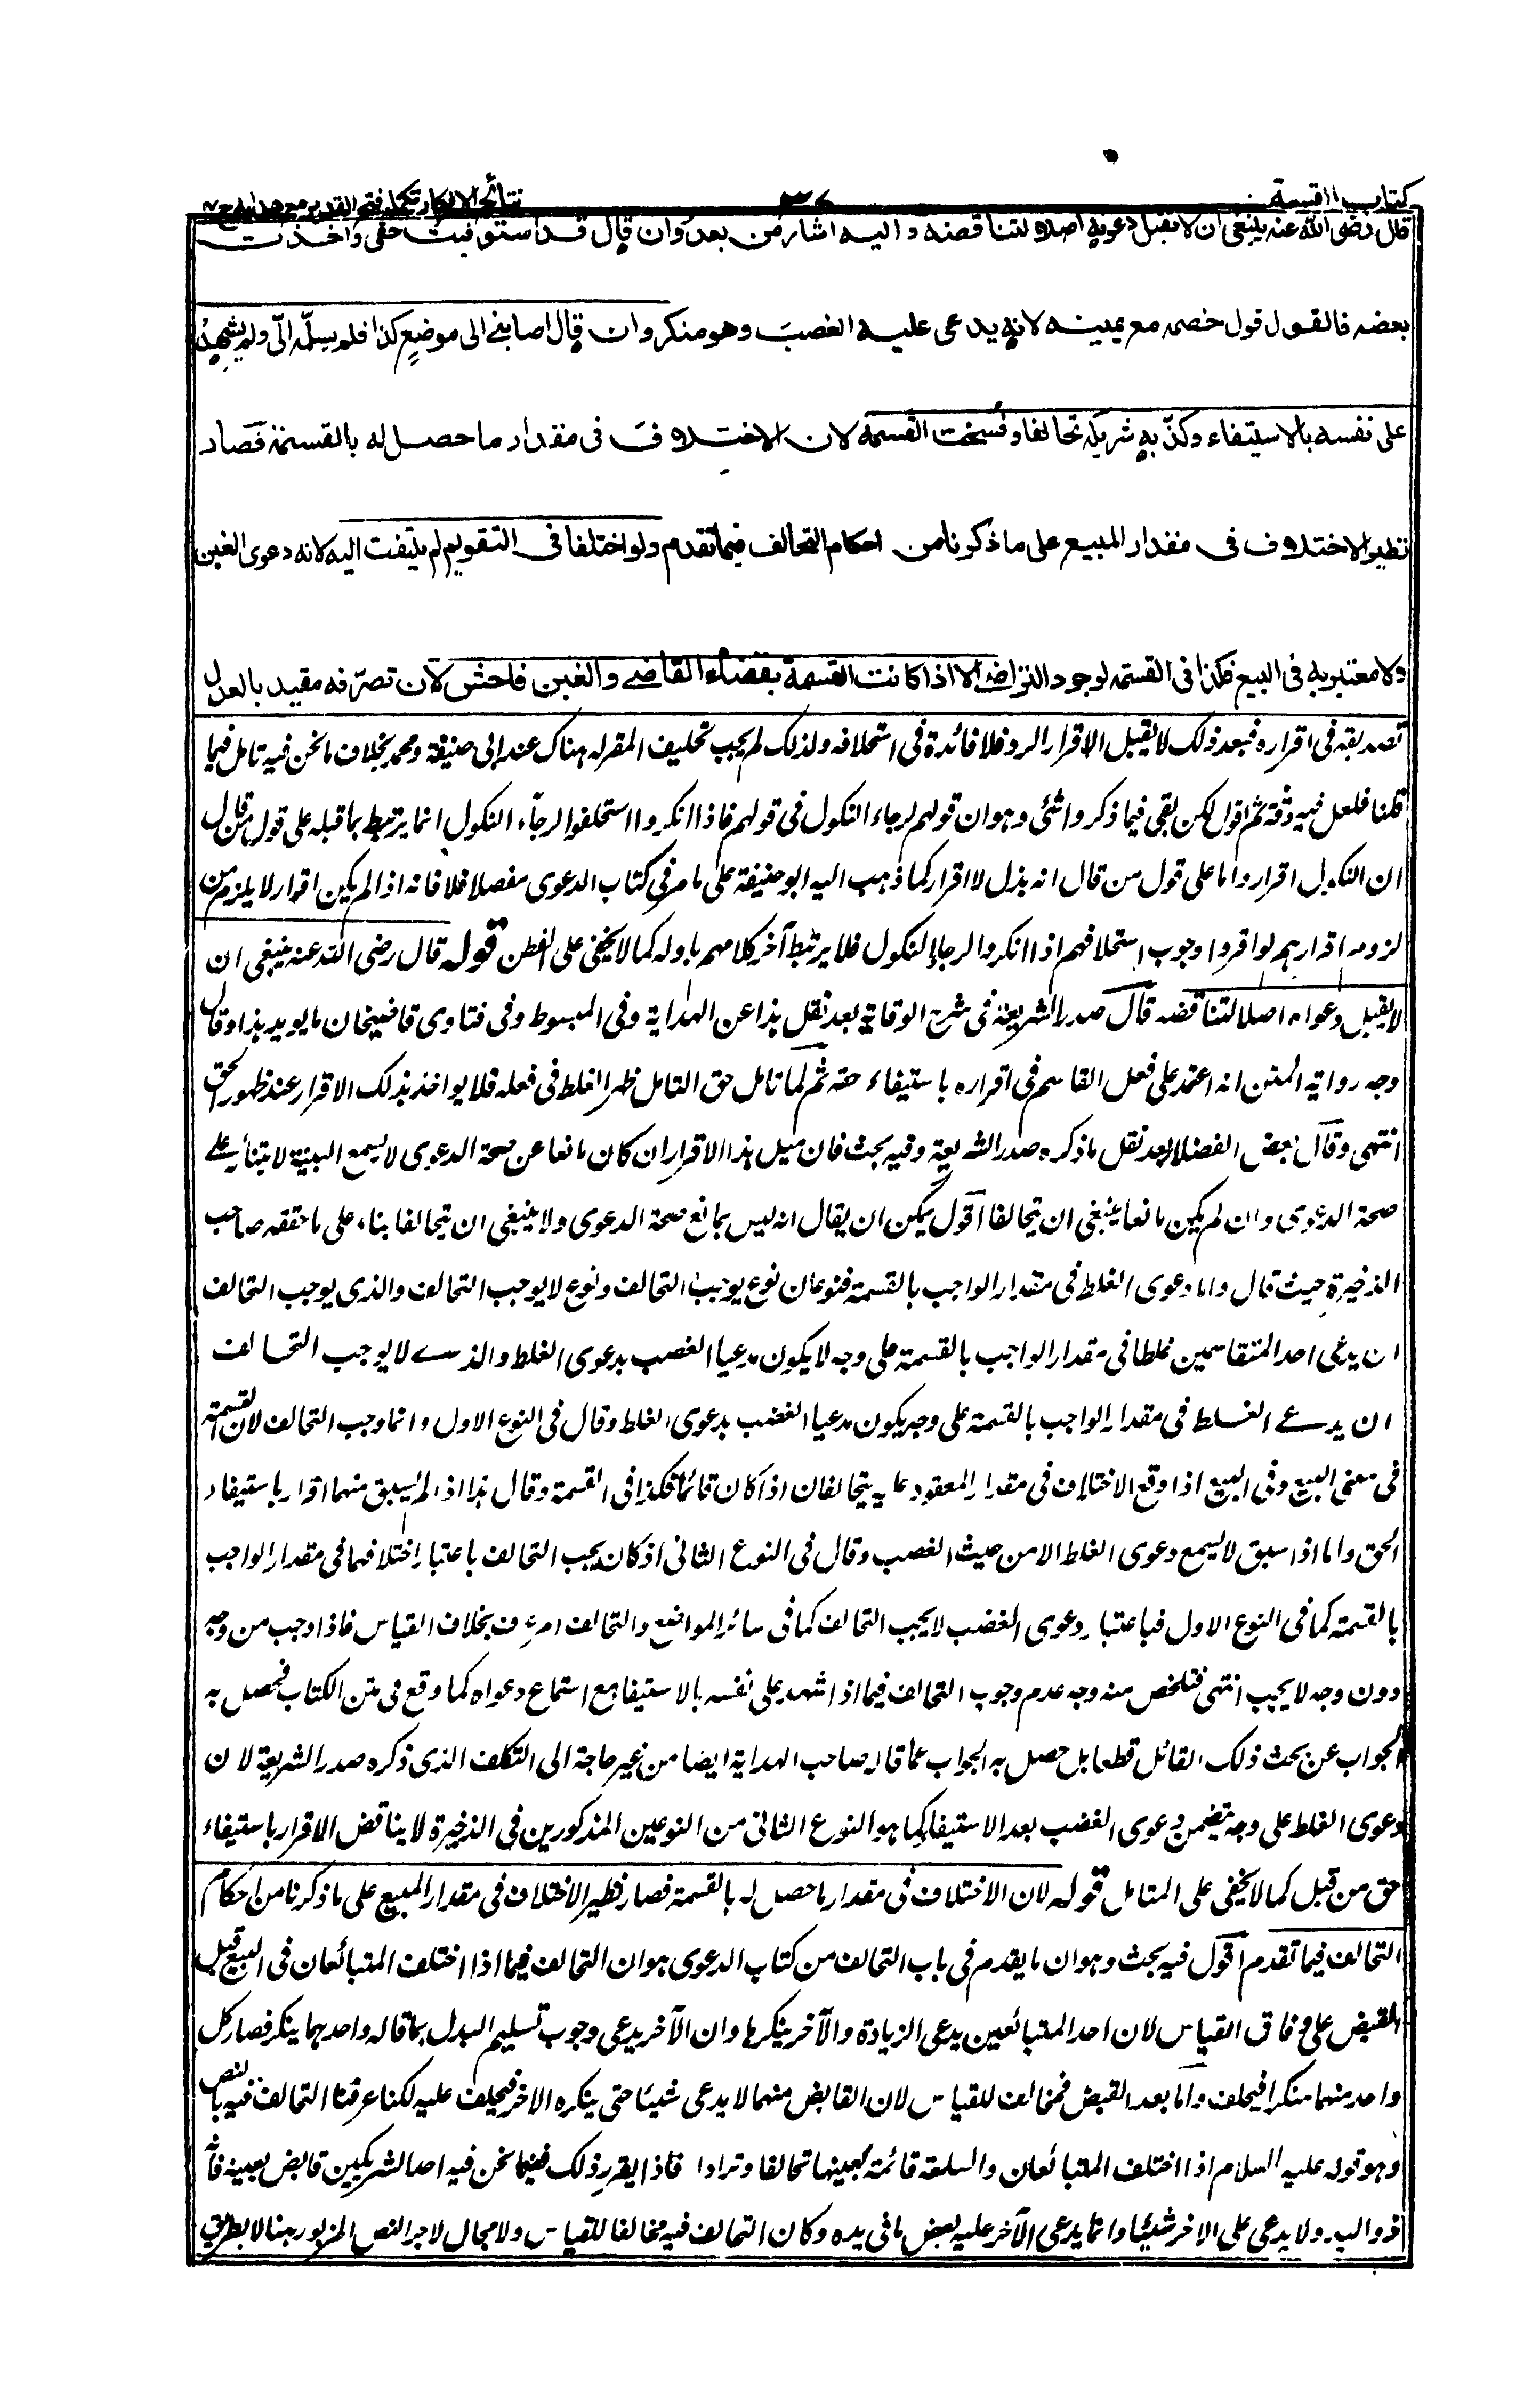 كتاب القسمة
نتائج الافكار تكمله فتح القدير مع هدايه ج
قال رضى الله عنه ينبغى ان لا تقبل دعويه اصلا لتناقضه واليه اشار من بعد وان قال قد استوفيت حقى واخذت
بعضه فالقول قول خصمه مع يمينه لانه يدعى عليه الغصب وهو منكر وان قال اصابنے الى موضع كذا فلم يسلّمه الىّ ولم يشهد
على نفسه بالاستيفاء وكذّبه شريكه تحالفا وفُسخت القسمة لان الاختلاف فى مقدار ما حصل له بالقسمة فصار
نظير الاختلاف فى مقدار المبيع على ما ذكرنا من احكام التحالف فيما تقدم ولو اختلفا فى التقويم لم يلتفت اليه لانه دعوى الغبن
ولا معتبر به فى البيع فكذا فى القسمة لوجود التراضى الا اذا كانت القسمة بقضاء القاضے والغبن فاحش لان تصرّفه مقيد بالعدل
تصديقه فى اقراره فبعد ذلك لا يقبل الاقرار الرد فلا فائدة فى استحلافه ولذلك لم يجب تحليف المقر له هناك عند ابى حنيفة ومحمد بخلاف ما نحن فيه تامل فيما
قلنا فلعل فيه دقة ثم اقول لكن بقى فيما ذكروا شئى وهو ان قولهم لرجاء النكول فى قولهم فاذا انكروا استحلفوا لرجآء النكول انما يرتبط بما قبله على قول من قال
ان النكول اقرار واما على قول من قال انه بذل لا اقرار كما ذهب اليه ابو حنيفة على ما مر فى كتاب الدعوى مفصلا فلا فانه اذا لم يكن اقرار لا يلزم من
لزومه اقرارهم لو اقروا وجوب استحلافهم اذا انكروا لرجاء النكول فلا يرتبط آخر كلامهم باوله كما لا يخفى على الفطن قوله قال رضى الله عنه ينبغى ان
لا يقبل دعواه اصلا لتناقضه قال صدر الشريعة فى شرح الوقاية بعد نقل هذا عن الهداية وفى المبسوط وفى فتاوى قاضيخان ما يويد هذا وقال
وجه رواية المتن انه اعتمد على فعل القاسم فى اقراره باستيفاء حقه ثم لما تامل حق التامل ظهر الغلط فى فعله فلا يواخذ بذلك الاقرار عند ظهور الحق
انتهى وقال بعض الفضلاء بعد نقل ما ذكره صدر الشريعة وفيه بحث فان مثل هذا الاقرار ان كان مانعا عن صحة الدعوى لا يسمع البينة لابتنائه على
صحة الدعوى وان لم يكن مانعا ينبغى ان يتحالفا اقول يمكن ان يقال انه ليس بمانع صحة الدعوى ولا ينبغى ان يتحالفا بناء على ما حققه صاحب
الذخيرة حيث قال واما دعوى الغلط فى مقدار الواجب بالقسمة فنوعان نوع يوجب التحالف ونوع لا يوجب التحالف والذى يوجب التحالف
ان يدعى احد المتقاسمين غلطا فى مقدار الواجب بالقسمة على وجه لا يكون مدعيا الغصب بدعوى الغلط والذے لا يوجب التحالف
ان يدعے الغلط فى مقدار الواجب بالقسمة على وجه يكون مدعيا الغضب بدعوى الغلط وقال فى النوع الاول وانما وجب التحالف لان القسمة
فى معنى البيع وفى البيع اذا وقع الاختلاف فى مقدار المعقود عليه يتحالفان اذا كان قائما فكذا فى القسمة وقال هذا اذا لم يسبق منهما اقرار باستيفاء
الحق واما اذا سبق لا يسمع دعوى الغلط الا من حيث الغصب وقال فى النوع الثانى اذ كان يجب التحالف باعتبار اختلافهما فى مقدار الواجب
بالقسمة كما فى النوع الاول فباعتبار دعوى الغضب لا يجب التحالف كما فى سائر المواضع والتحالف امر عرف بخلاف القياس فاذا وجب من وجه
دون وجه لا يجب انتهى فتلخص منه وجه عدم وجوب التحالف فيما اذا شهد على نفسه بالاستيفاء مع استماع دعواه كما وقع فى متن الكتاب فحصل به
الجواب عن بحث ذلك القائل قطعا بل حصل به الجواب عما قاله صاحب الهداية ايضا من غير حاجة الى التكلف الذى ذكره صدر الشريعة لان
دعوى الغلط على وجه يتضمن دعوى الغضب بعد الاستيفاء كما هو النوع الثانى من النوعين المذكورين فى الذخيرة لا يناقض الاقرار باستيفاء
حق من قبل كما لا يخفى على المتامل قوله لان الاختلاف فى مقدار ما حصل له بالقسمة فصار نظير الاختلاف فى مقدار المبيع على ما ذكرنا من احكام
التحالف فيما تقدم اقول فيه بحث وهو ان ما يقدم فى باب التحالف من كتاب الدعوى هو ان التحالف فيما اذا اختلف المتبائعان فى البيع قبل
القبض على وفاق القياس لان احد المتبائعين يدعى الزيادة والآخر ينكرها وان الآخر يدعى وجوب تسليم البدل بما قاله واحدهما ينكر فصار كل
واحد منهما منكرا فيحلف واما بعد القبض فمخالف للقياس لان القابض منهما لا يدعى شيئا حتى ينكره الاخر فيحلف عليه لكنا عرفنا التحالف فيه بالنص
وهو قوله عليه السلام اذا اختلف المتبائعان والسلعة قائمة بعينها تحالفا وترادا فاذا يقرر ذلك ففيما نحن فيه احد الشريكين قابض
ولا يدعى على الاخر شيئا وانما يدعى الآخر عليه بعض ما فى يده وكان التحالف فيه مخالفا للقياس ولا مجال لاجراء النص المزبور هنا لا بطريق